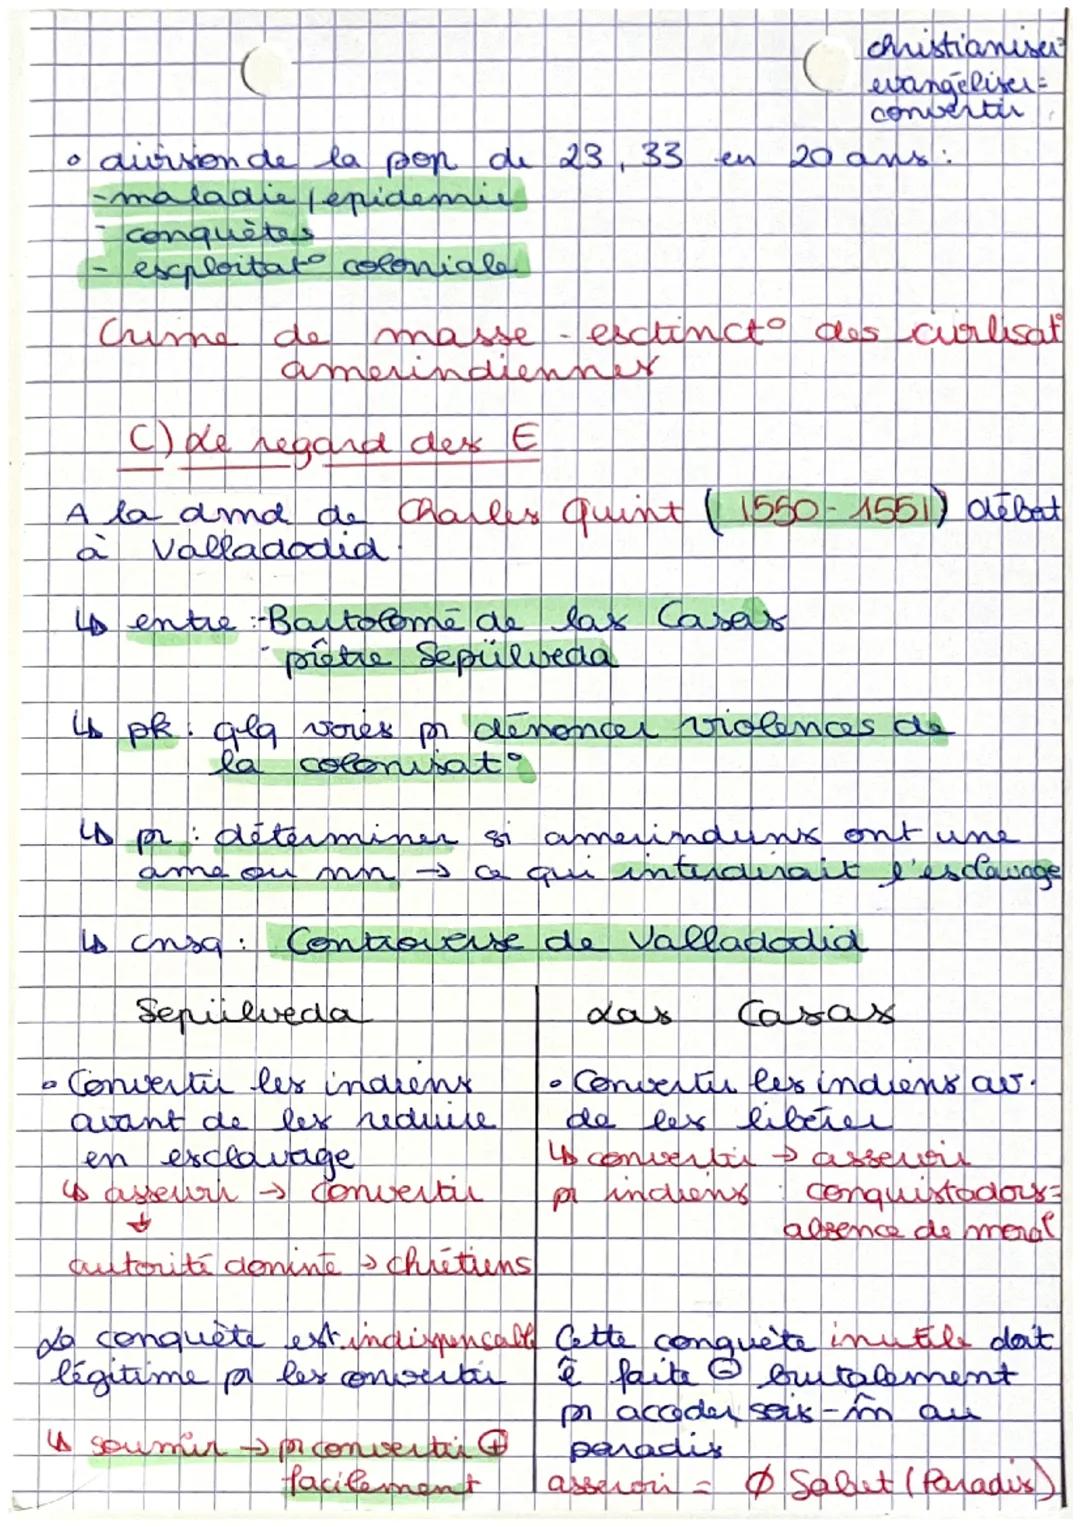 christianiser=
evangéliser=
convertir
• division de la pop de 23,33 en 20 ans :
-maladie / epidemie
- conquêtes
- exploitat° coloniale
Crime de masse - extinct° des civilisat°
amerindiennes
C) Le regard des E
A la dmd de Charles Quint (1550-1551) débat
à Valladodid.
↳ entre :-Bartolomé de las Casas
- prêtre Sepülveda
↳ pk : qlq voies pr dénoncer violences de
la colonisat°
↳ pr : déterminer si amerindiens ont une
âme ou nn → ce qui interdirait l'esclavage
↳ cnsq : Controverse de Valladodid
Sepülveda
• Convertir les indiens
avant de les reduire
en esclavage
↳ asservir → convertir
↓
autorité domine → chrétiens
La conquête est indispensable
légitime pr les convertir
↳ soumir → pr convertir ⊕
facilement
Las Casas
• Convertir les indiens av.
de les libérer
↳ convertir → asservir
pr indiens : conquistadors=
absence de moral
Cette conquête inutile doit
ê faite ⊖ brutalement
pr acceder sois-m̂ au
paradis
asservir = Ø Salut (Paradis)